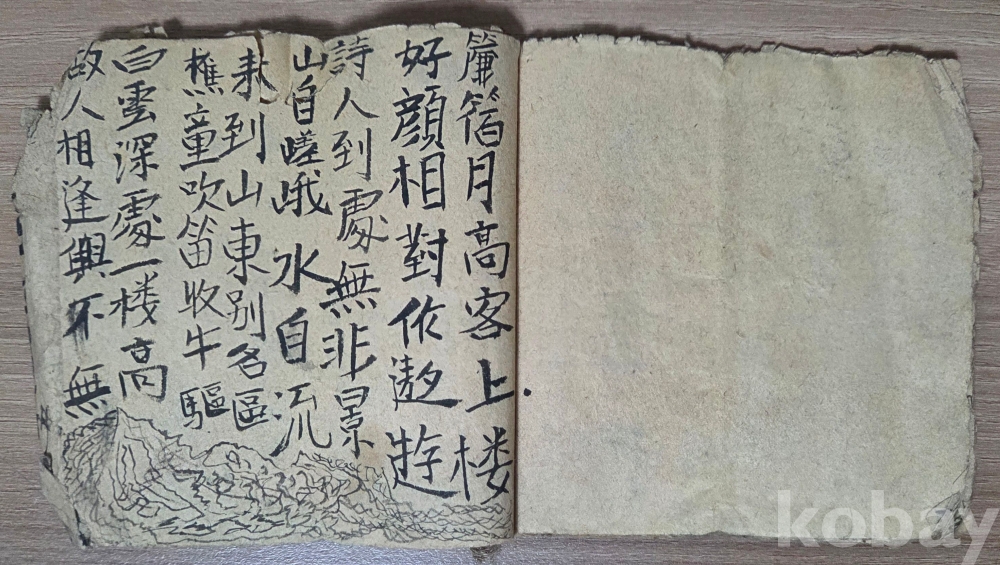 簾箔月高客上楼
好顔相對作遨遊
詩人到處無非景
山自嵯峨水自流
来到山東别名區
樵童吹笛收牛驅
白雲深處一楼高
故人相逢興不無
kobay